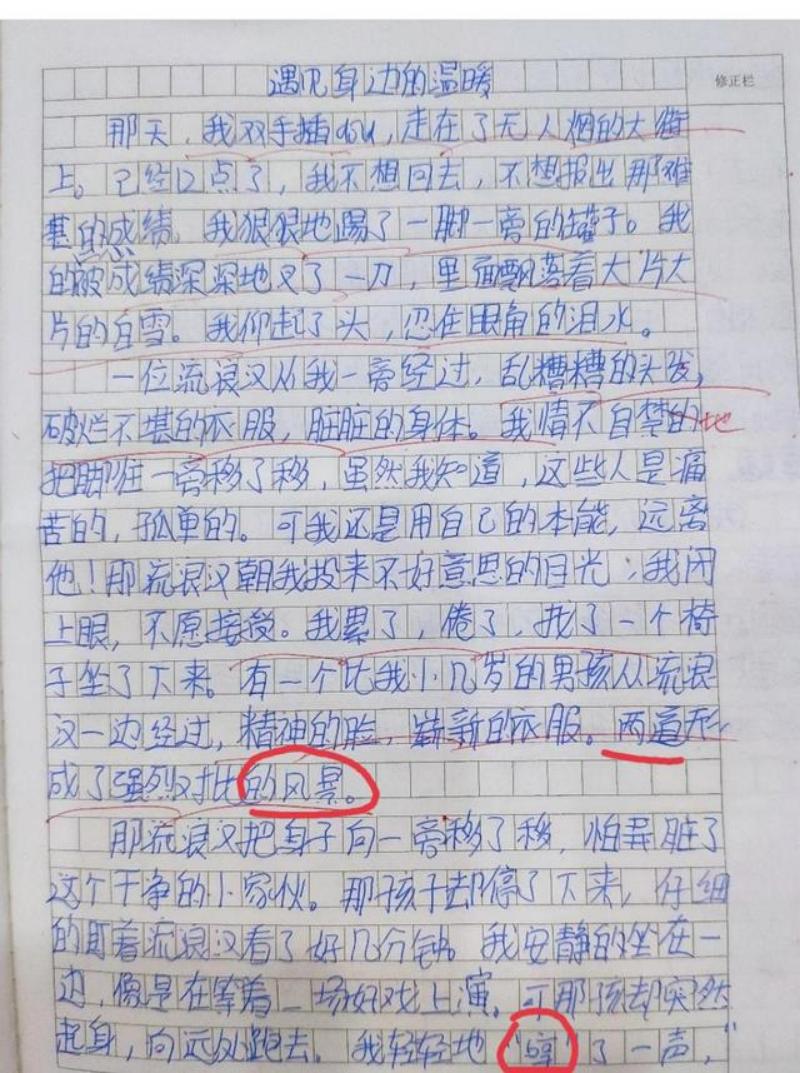 遇见身边的温暖
修正栏
那天,我双手插dou,走在了无人烟的大街
上。已经12点了,我不想回去,不想报出那难
堪的成绩。我狠狠地踢了一脚一旁的罐子。我
的被成绩深深地叉了一刀,里面飘落着大片大
片的白雪。我仰起了头,忍住眼角的泪水。
一位流浪汉从我一旁经过,乱糟糟的头发,
破烂不堪的衣服,脏脏的身体。我情不自禁的地
把脚往一旁移了移,虽然我知道,这些人是痛
苦的,孤单的。可我还是用自己的本能,远离
他!那流浪汉朝我投来不好意思的目光;我闭
上眼,不愿接受。我累了,倦了,找了一个椅
子坐了下来。有一个比我小几岁的男孩从流浪
汉一边经过,精神的脸,崭新的衣服。两道形
成了强烈对比的风景。
那流浪汉把身子向一旁移了移,怕弄脏了
这个干净的小家伙。那孩子却停了下来,仔细
的盯着流浪汉看了好几分钟。我安静的坐在一
边,像是在等着一场好戏上演。可那孩却突然
起身,向远处跑去。我轻轻地“哼”了一声,“